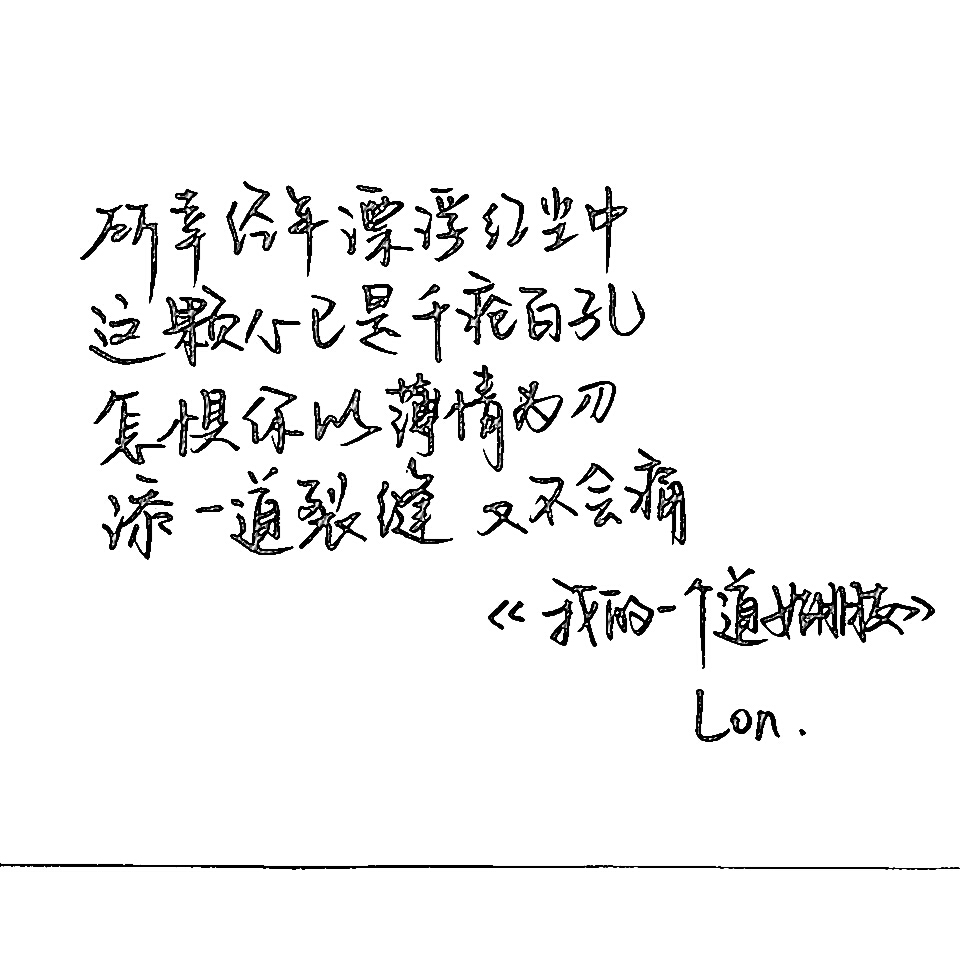 所幸经年漂浮红尘中
这颗心已是千疮百孔
怎惧你以薄情为刃
添一道裂缝 又不会痛
《我的一个道姑朋友》
Lon.